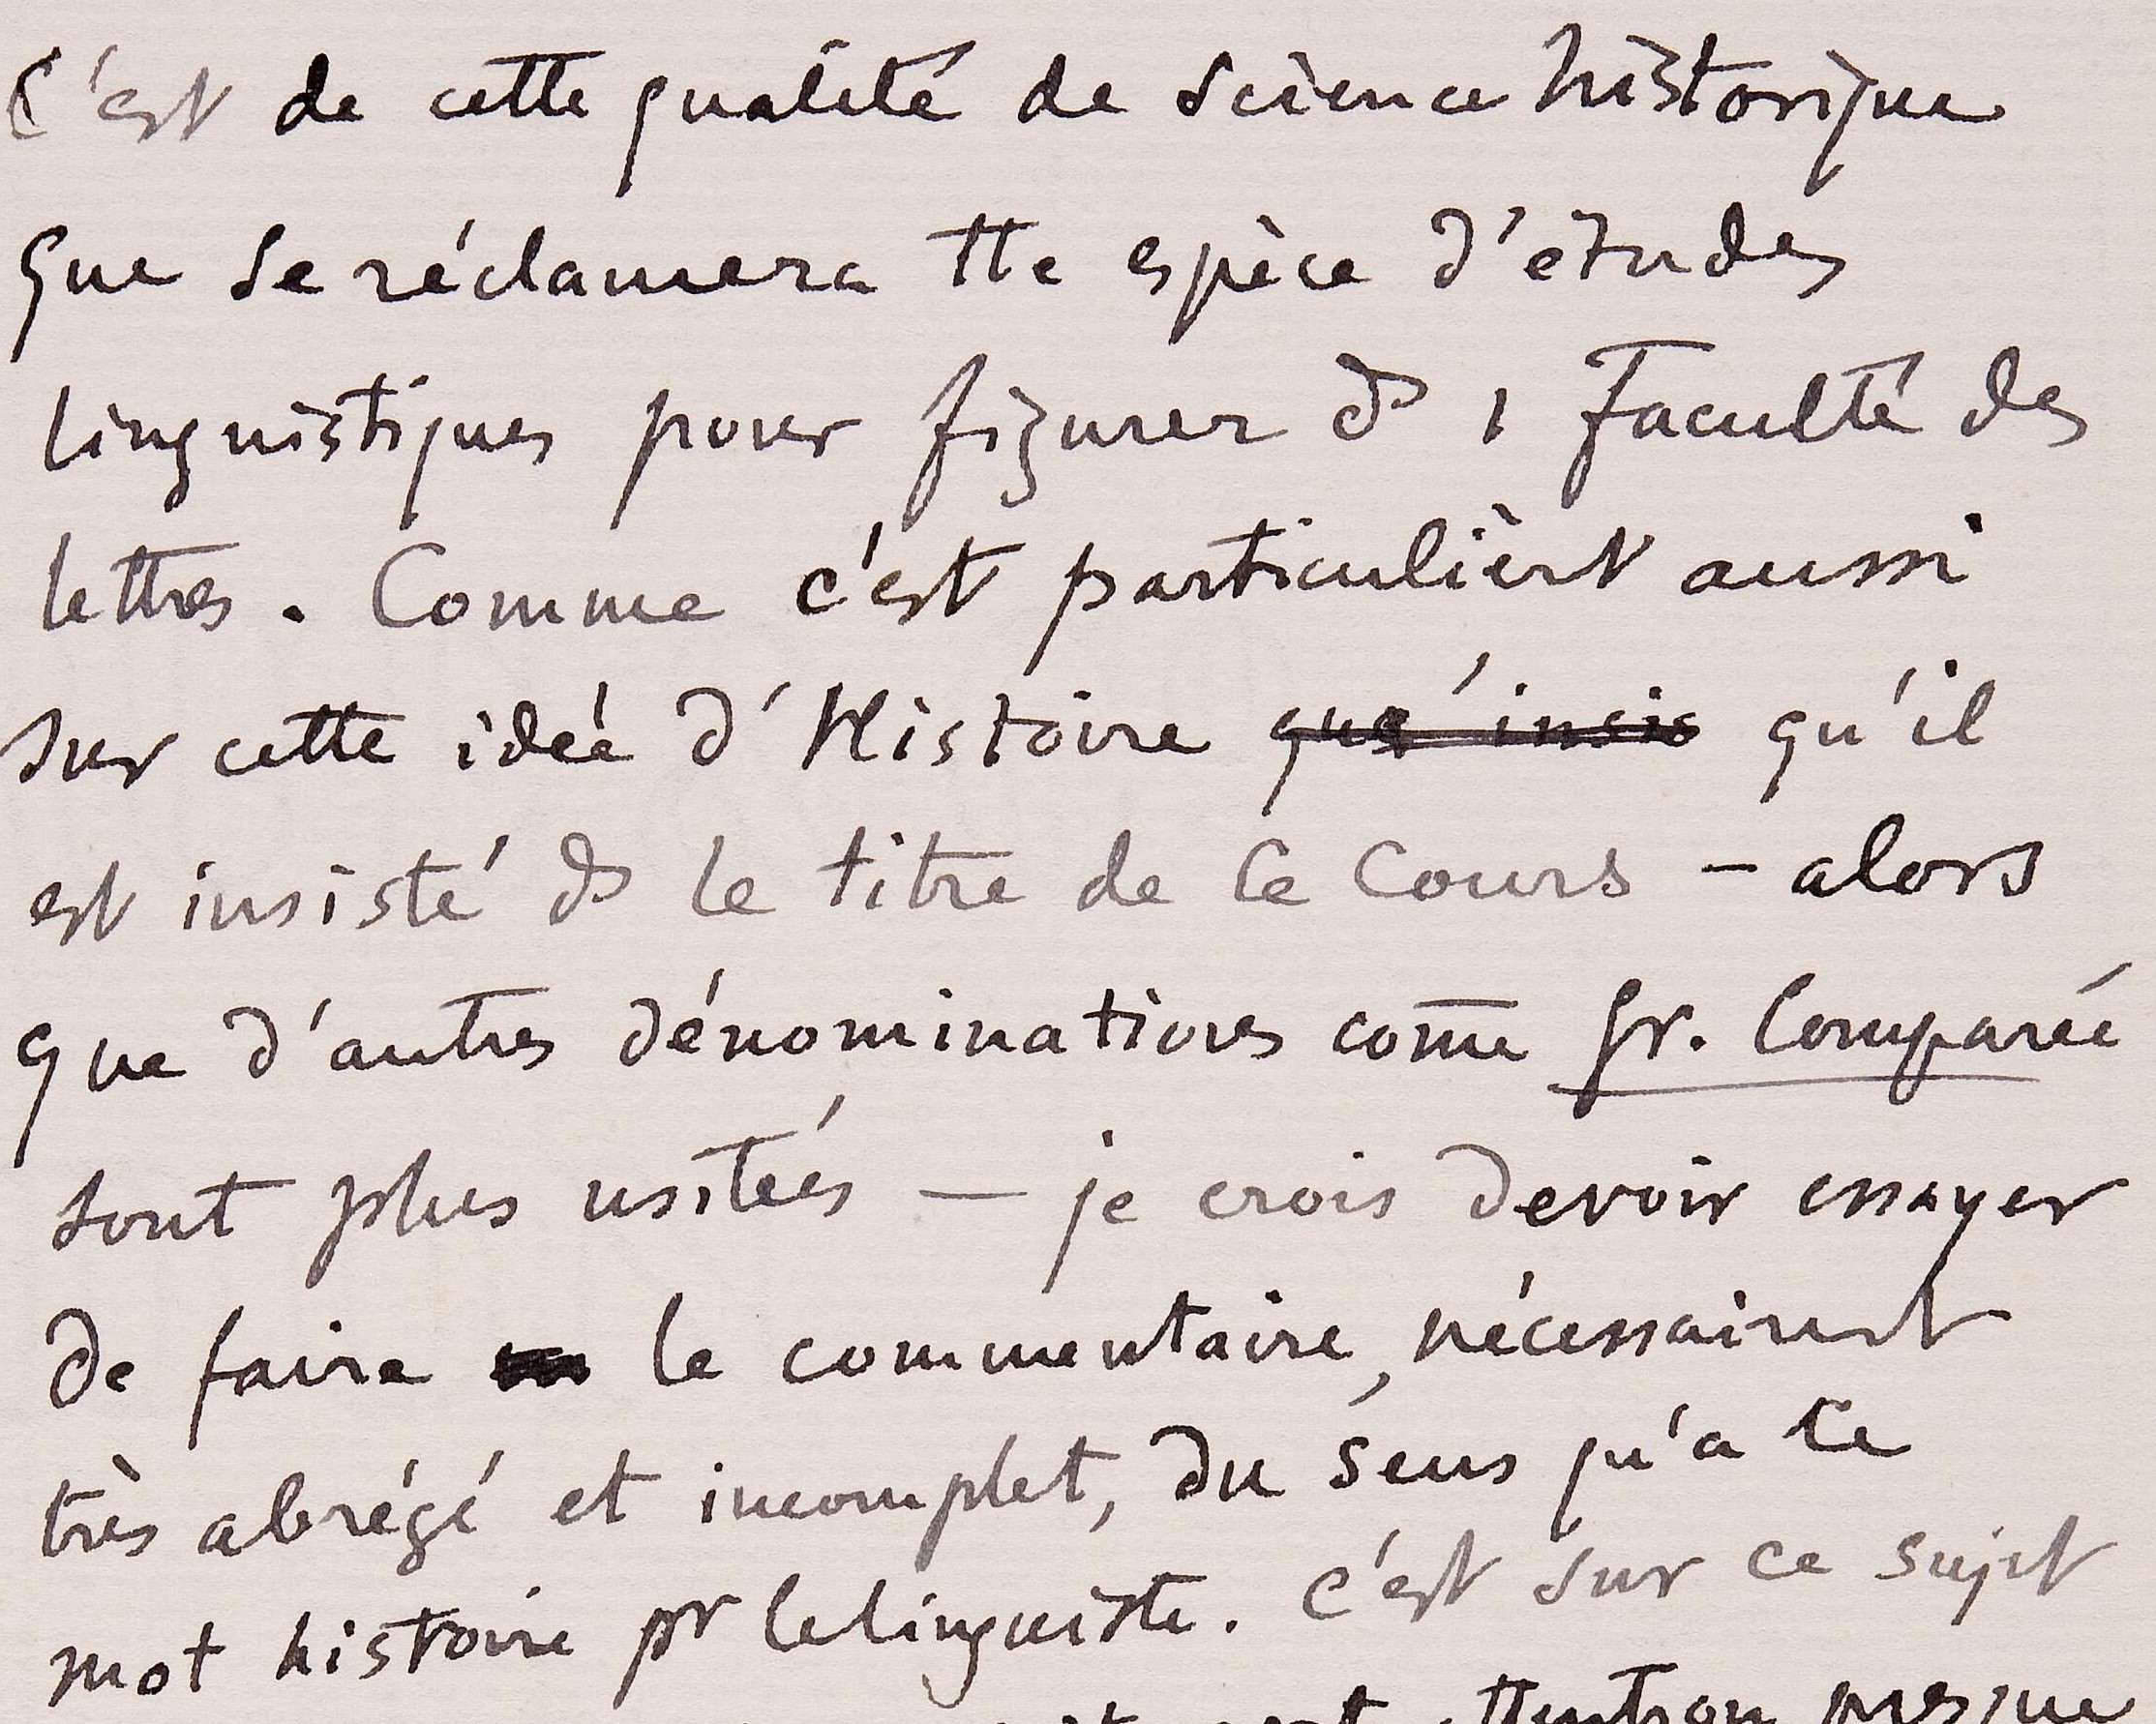 C'est de cette qualité de science historique
que se réclamera tte espèce d'études
linguistiques pour figurer ds 1 Faculté des
lettres. Comme c'est particulièrt aussi
sur cette idée d'Histoire que' insis qu'il
est insisté ds le titre de ce Cours – alors
que d'autres dénominations come̅ Gr. Comparée
sont plus usitées — je crois devoir essayer
de faire le commentaire, nécessairent
très abrégé et incomplet, du sens qu'a ce
mot histoire pr le linguiste. C'est sur ce sujet
attention presque